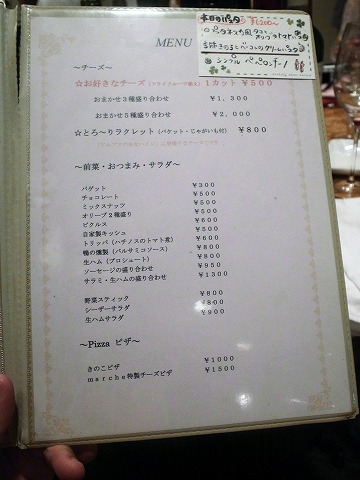 MENU
本日のパスタ
シンプル ペペロンチーノ
～チーズ～
☆お好きなチーズ（ドライフルーツ添え）1カット ￥500
おまかせ3種盛り合わせ ￥1,300
おまかせ5種盛り合わせ ￥2,000
☆とろ～りラクレット（バケット・じゃがいも付）￥800
～前菜・おつまみ・サラダ～
バゲット ￥300
チョコレート ￥500
ミックスナッツ ￥500
オリーブ2種盛り ￥500
ピクルス ￥500
自家製キッシュ ￥600
トリッパ（ハチノスのトマト煮） ￥600
鴨の燻製（バルサミコソース） ￥800
生ハム（プロシュート） ￥800
ソーセージの盛り合わせ ￥950
サラミ・生ハムの盛り合わせ ￥1300
野菜スティック ￥800
シーザーサラダ ￥800
生ハムサラダ ￥900
～Pizza ピザ～
きのこピザ ￥1000
marche特製チーズピザ ￥1500